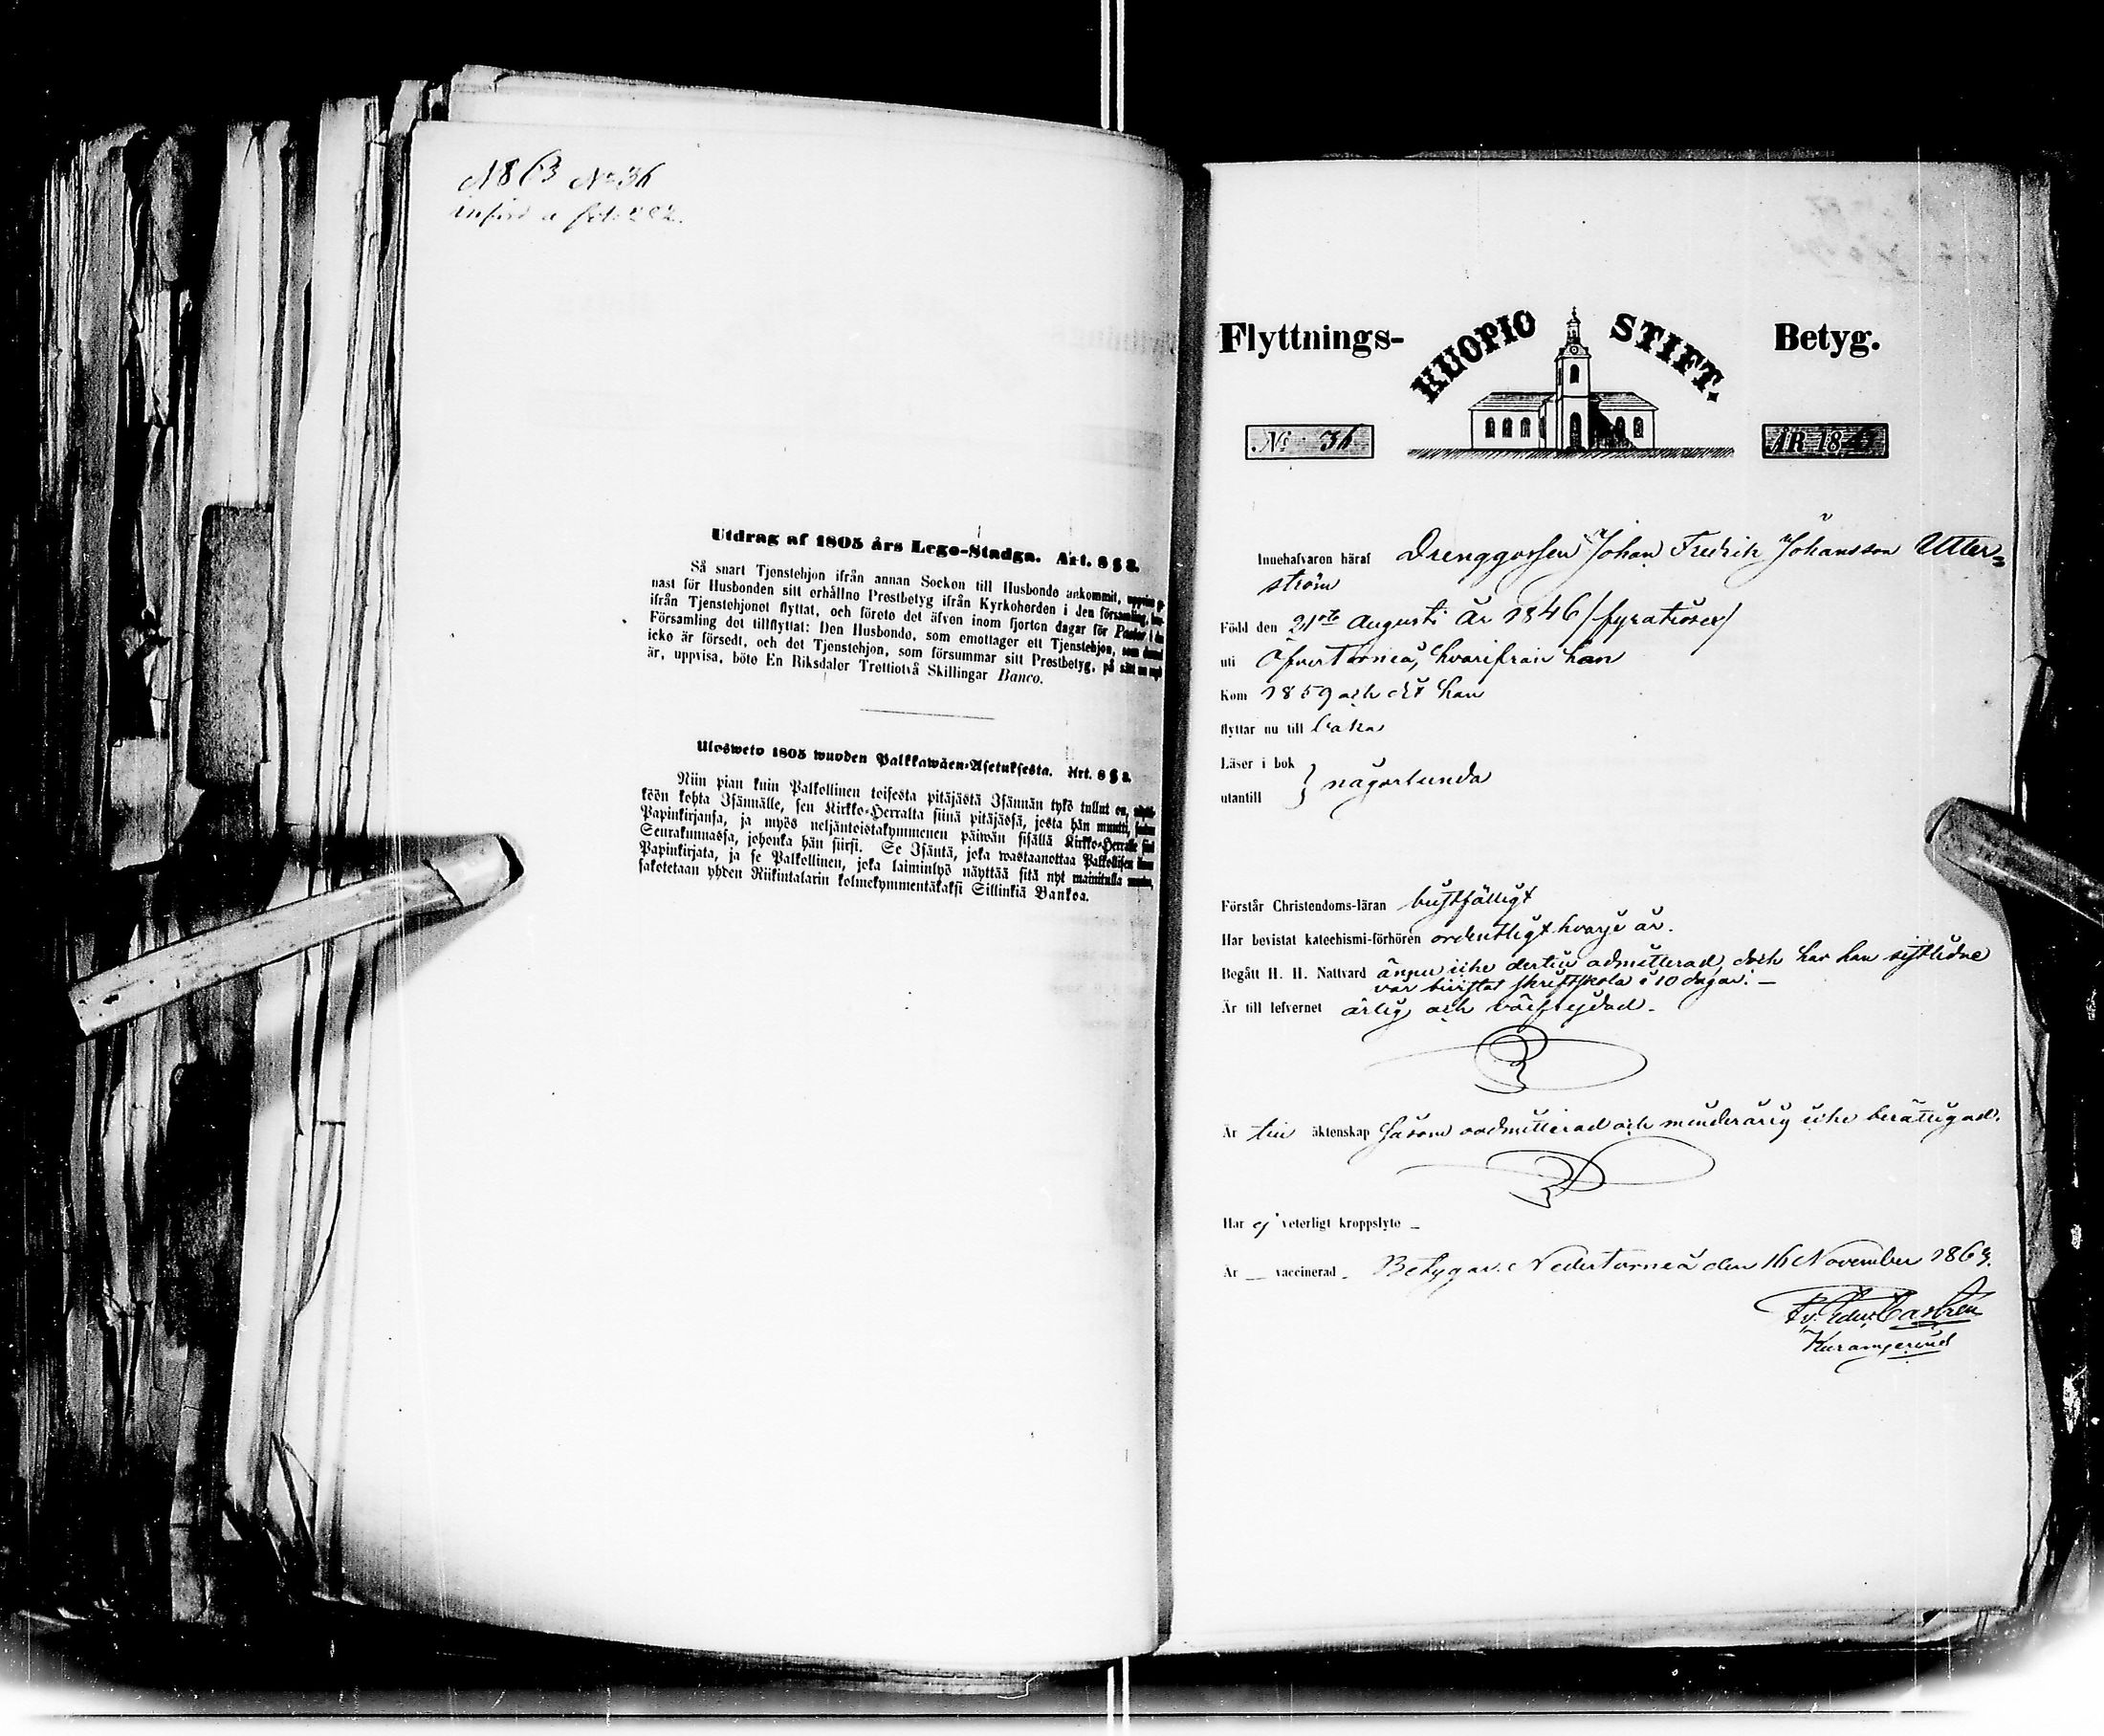 1863 No 36
införd a fol. 282.
Utdrag af 1805 års Lego-Stadga. Art. 8 § 2.
Så snart Tjenstehjon ifrån annan Socken till Husbonde ankommit, uppvise
nast för Husbonden sitt erhållno Prestbetyg ifrån Kyrkoherden i den församling,
ifrån Tjenstehjonet flyttat, och förete det äfven inom fjorton dagar för Pastor i den
Församling det tillflyttat: Den Husbonde, som emottager ett Tjenstehjon, som
icke är försedt, och det Tjenstehjon, som försummar sitt Prestbetyg, på sätt nu sagdt
är, uppvisa, böte En Riksdaler Trettiotvå Skillingar Banco.
Ulosweto 1805 wuoden Palkkawäen-Asetuksesta. Art. 8 § 2.
Niin pian kuin Palkollinen toisesta pitäjästä Isännän tykö tullut on,
köön kohta Isännälle, sen Kirkko-Herralta siinä pitäjässä, josta hän muutti, saadun
Papinkirjansa, ja myös neljäntoistakymmenen päiwän sisällä Kirkko-Herralle siinä
Seurakunnassa, johonka hän siirsi. Se Isäntä, joka wastaanottaa Palkollisen ilman
Papinkirjata, ja se Palkollinen, joka laiminlyö näyttää sitä nyt mainitulla
sakotetaan yhden Riikintalarin kolmekymmentäkaksi Sillinkiä Bankoa.
Flyttnings- KUOPIO STIFT. Betyg.
No 36 ÅR 1863
Innehafvaren häraf Drenggossen Johan Fredrik Johansson Utter=
ström
Född den 21ste Augusti År 1846 /fyratiosex/
uti ÖfverTorneå, hvarifrån han
Kom 1859 och dit han
flyttar nu till baka
Läser i bok
utantill } någorlunda
Förstår Christendoms-läran bustfälligt
Har bevistat katechismi-förhören ordentligt hvarje år.
Begått H. H. Nattvard ännu icke dertill admitterad, dock har han sistlidne
vår bivistat skriftskola i 10 dagar. –
Är till lefvernet ärlig och välfrejdad.
Är till äktenskap såsom oadmitterad och minderårig icke berättigad.
Har ej veterligt kroppslyte –
Är – vaccinerad. Betygar. NederTorneå den 16 November 1863.
Fr. Edw. Castrén